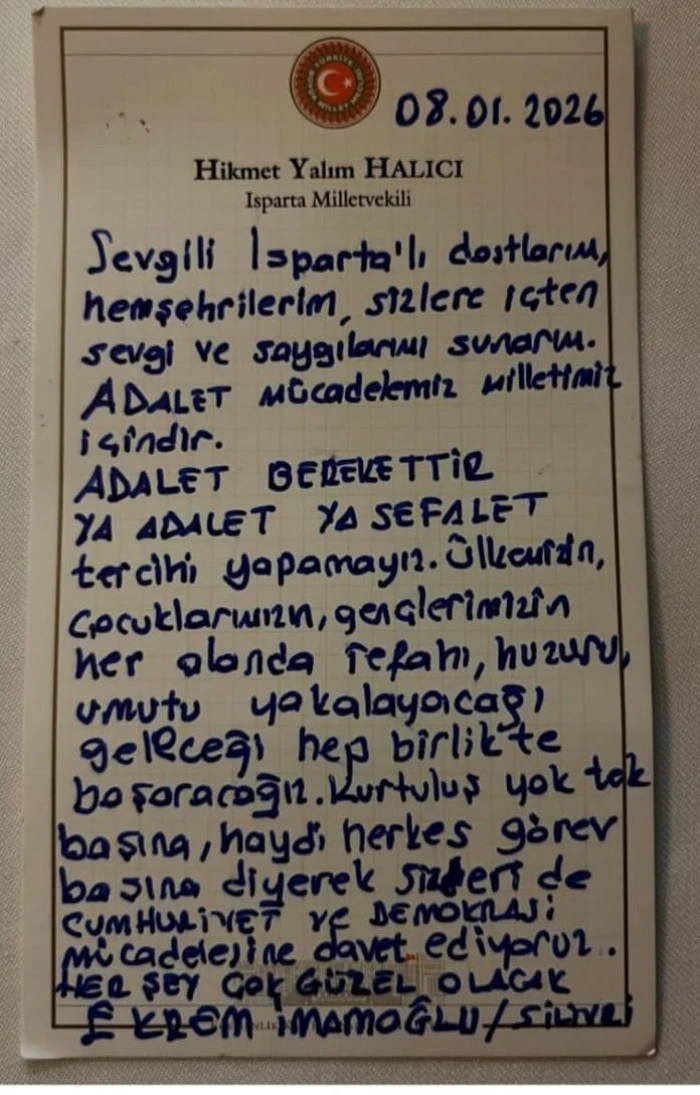 08.01.2026
Hikmet Yalım HALICI
Isparta Milletvekili
Sevgili Isparta'lı dostlarım,
hemşehrilerim, sizlere içten
sevgi ve saygılarımı sunarım.
ADALET mücadelemiz milletimiz
içindir.
ADALET BEREKETTİR
YA ADALET YA SEFALET
tercihi yapamayız. Ülkemizin,
çocuklarımızın, gençlerimizin
her alanda refahı, huzuru,
umutu yakalayacağı
geleceği hep birlikte
başaracağız. Kurtuluş yok tek
başına, haydi herkes görev
başına diyerek sizleri de
CUMHURİYET ve DEMOKRASİ
mücadelesine davet ediyoruz.
HER ŞEY ÇOK GÜZEL OLACAK
EKREM İMAMOĞLU/SİLİVRİ